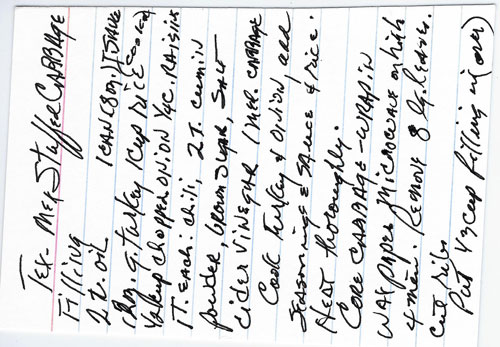 Tex-Mex Stuffed CABBAGE
Filling 1 CAN (8oz.) T SAUCE
2 t. oil
1 lb g. turkey 1 cup rice (cooked)
1/2 cup chopped onion 1/4 c. raisins
1 T. each chili, 2 t. cumin
powder, brown sugar, salt
cider vinegar 1 med. CABBAGE
Cook turkey & onion, add
seasonings & sauce & rice.
Heat thoroughly.
Core CABBAGE - WRAP in
WAX PAPER MICROWAVE on high
4 min. Remove 8 lg. leaves.
Cut ribs
Put 1/3 cup filling in (over)